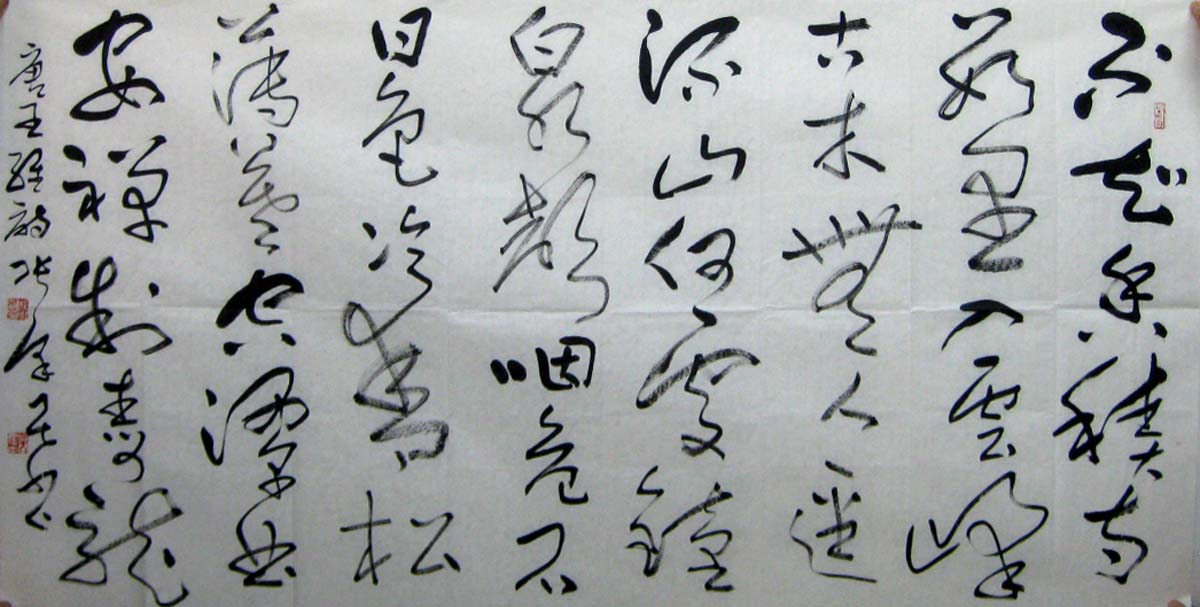 不知香積寺
數里入雲峰
古木無人逕
深山何處鐘
泉聲咽危石
日色冷青松
薄暮空潭曲
安禪制毒龍
唐王維詩